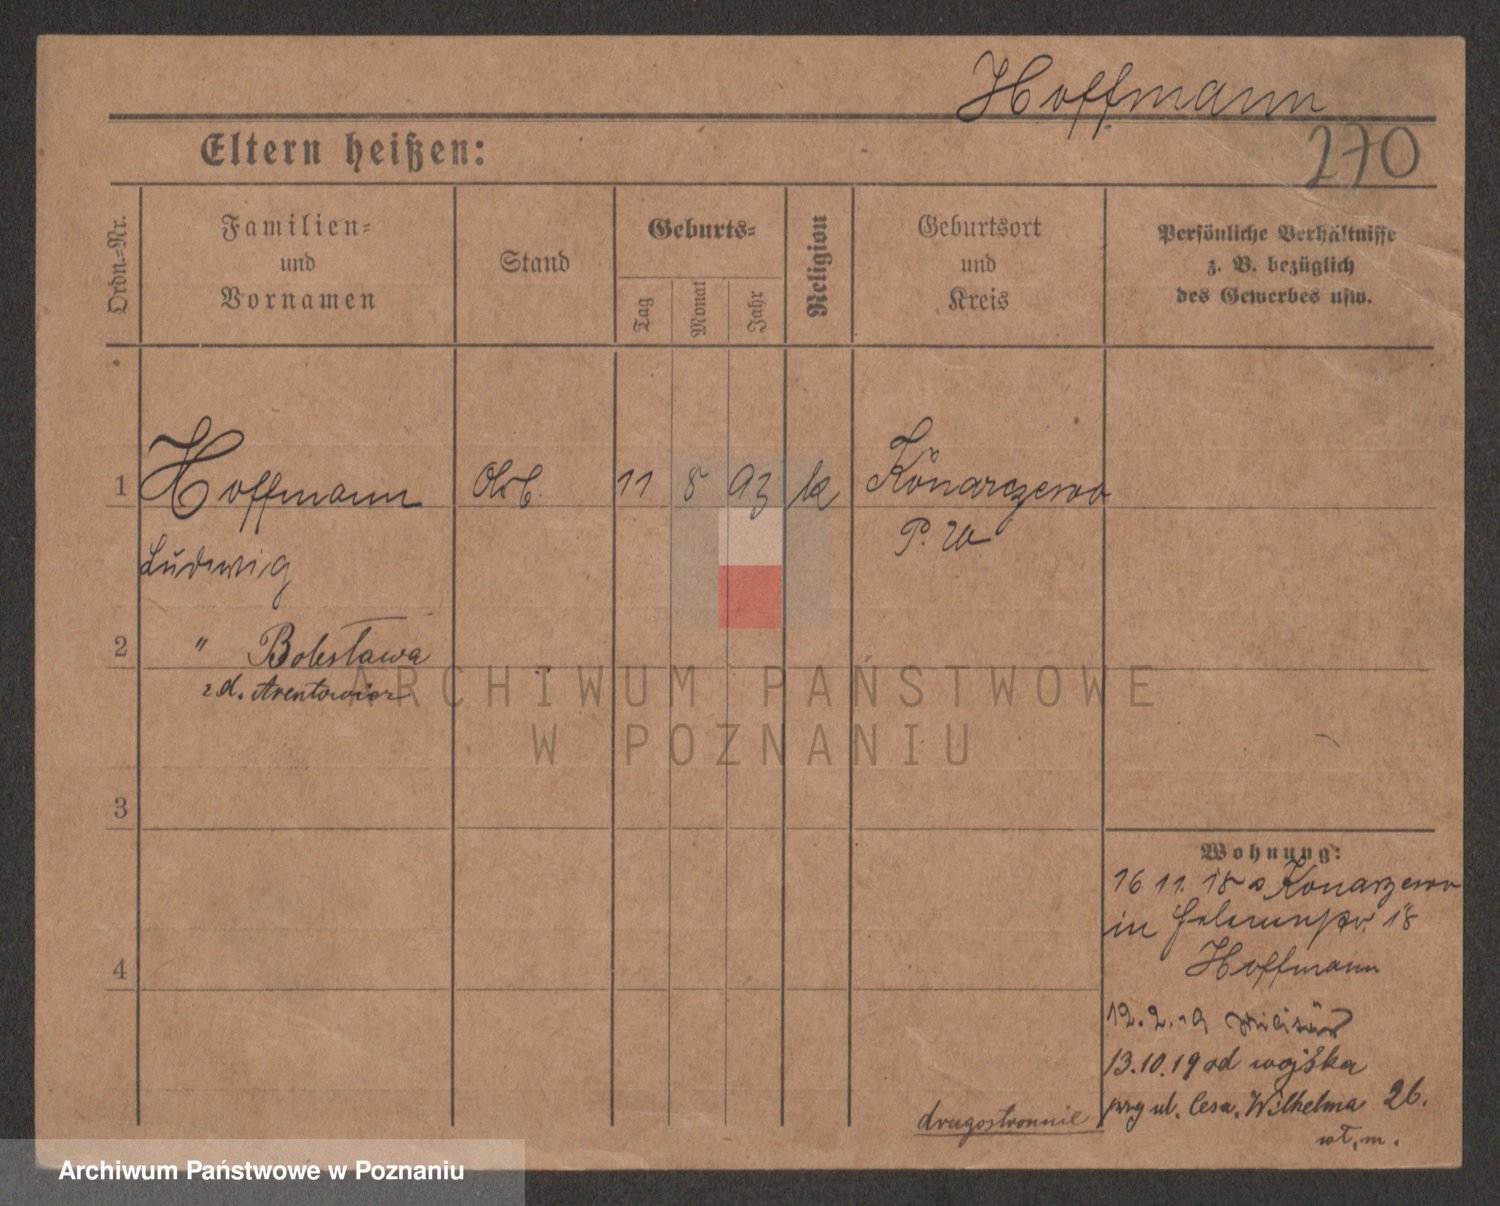 Hoffmann
270
Eltern heißen:
Ordn.=Nr.
Familien=
und
Vornamen
Stand
Geburts=
Tag
Monat
Jahr
Religion
Geburtsort
und
Kreis
Persönliche Verhältnisse
z. B. bezüglich
des Gewerbes usw.
1 Hoffmann Arb. 11 8 93 k Konarzewo
P. W
Ludwig
2 " Bolesława
z d. Arentowicz
ARCHIWUM PAŃSTWOWE
W POZNANIU
3
Wohnung:
16 11. 18 Konarzewo
in 18
Hoffmann
4
12.2.19 Militär
13.10.19 od wojska
przy ul. Cesa. Wilhelma 26.
wł. m.
drugostronnie
Archiwum Państwowe w Poznaniu